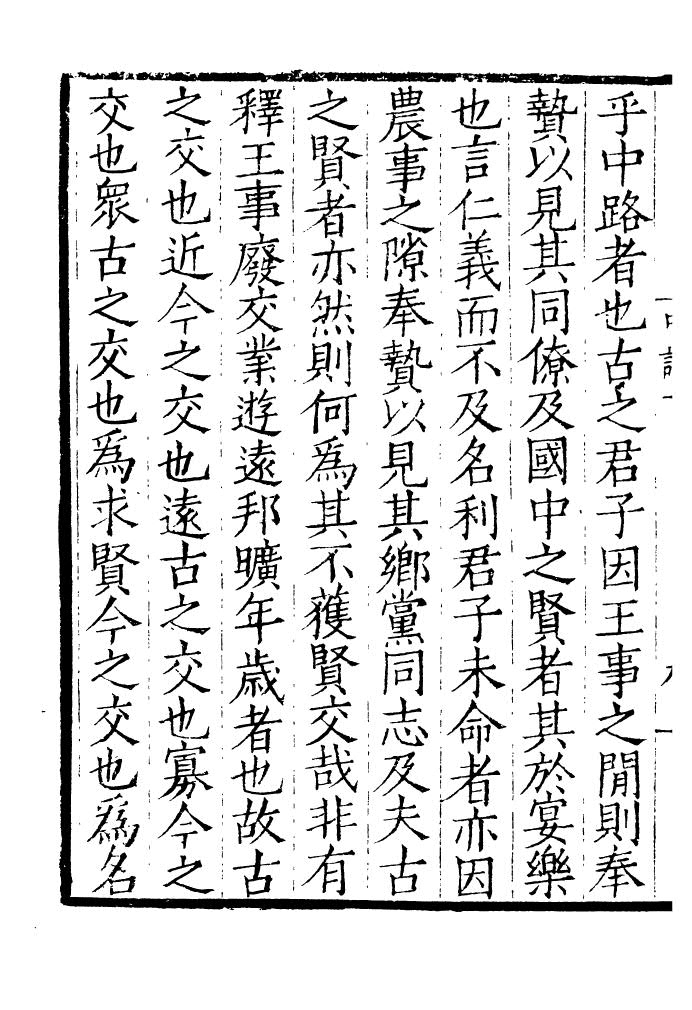 乎中路者也古之君子因王事之閒則奉
贄以見其同僚及國中之賢者其於宴樂
也言仁義而不及名利君子未命者亦因
農事之隙奉贄以見其鄉黨同志及夫古
之賢者亦然則何爲其不獲賢交哉非有
釋王事廢交業遊遠邦曠年歲者也故古
之交也近今之交也遠古之交也寡今之
交也眾古之交也爲求賢今之交也爲名